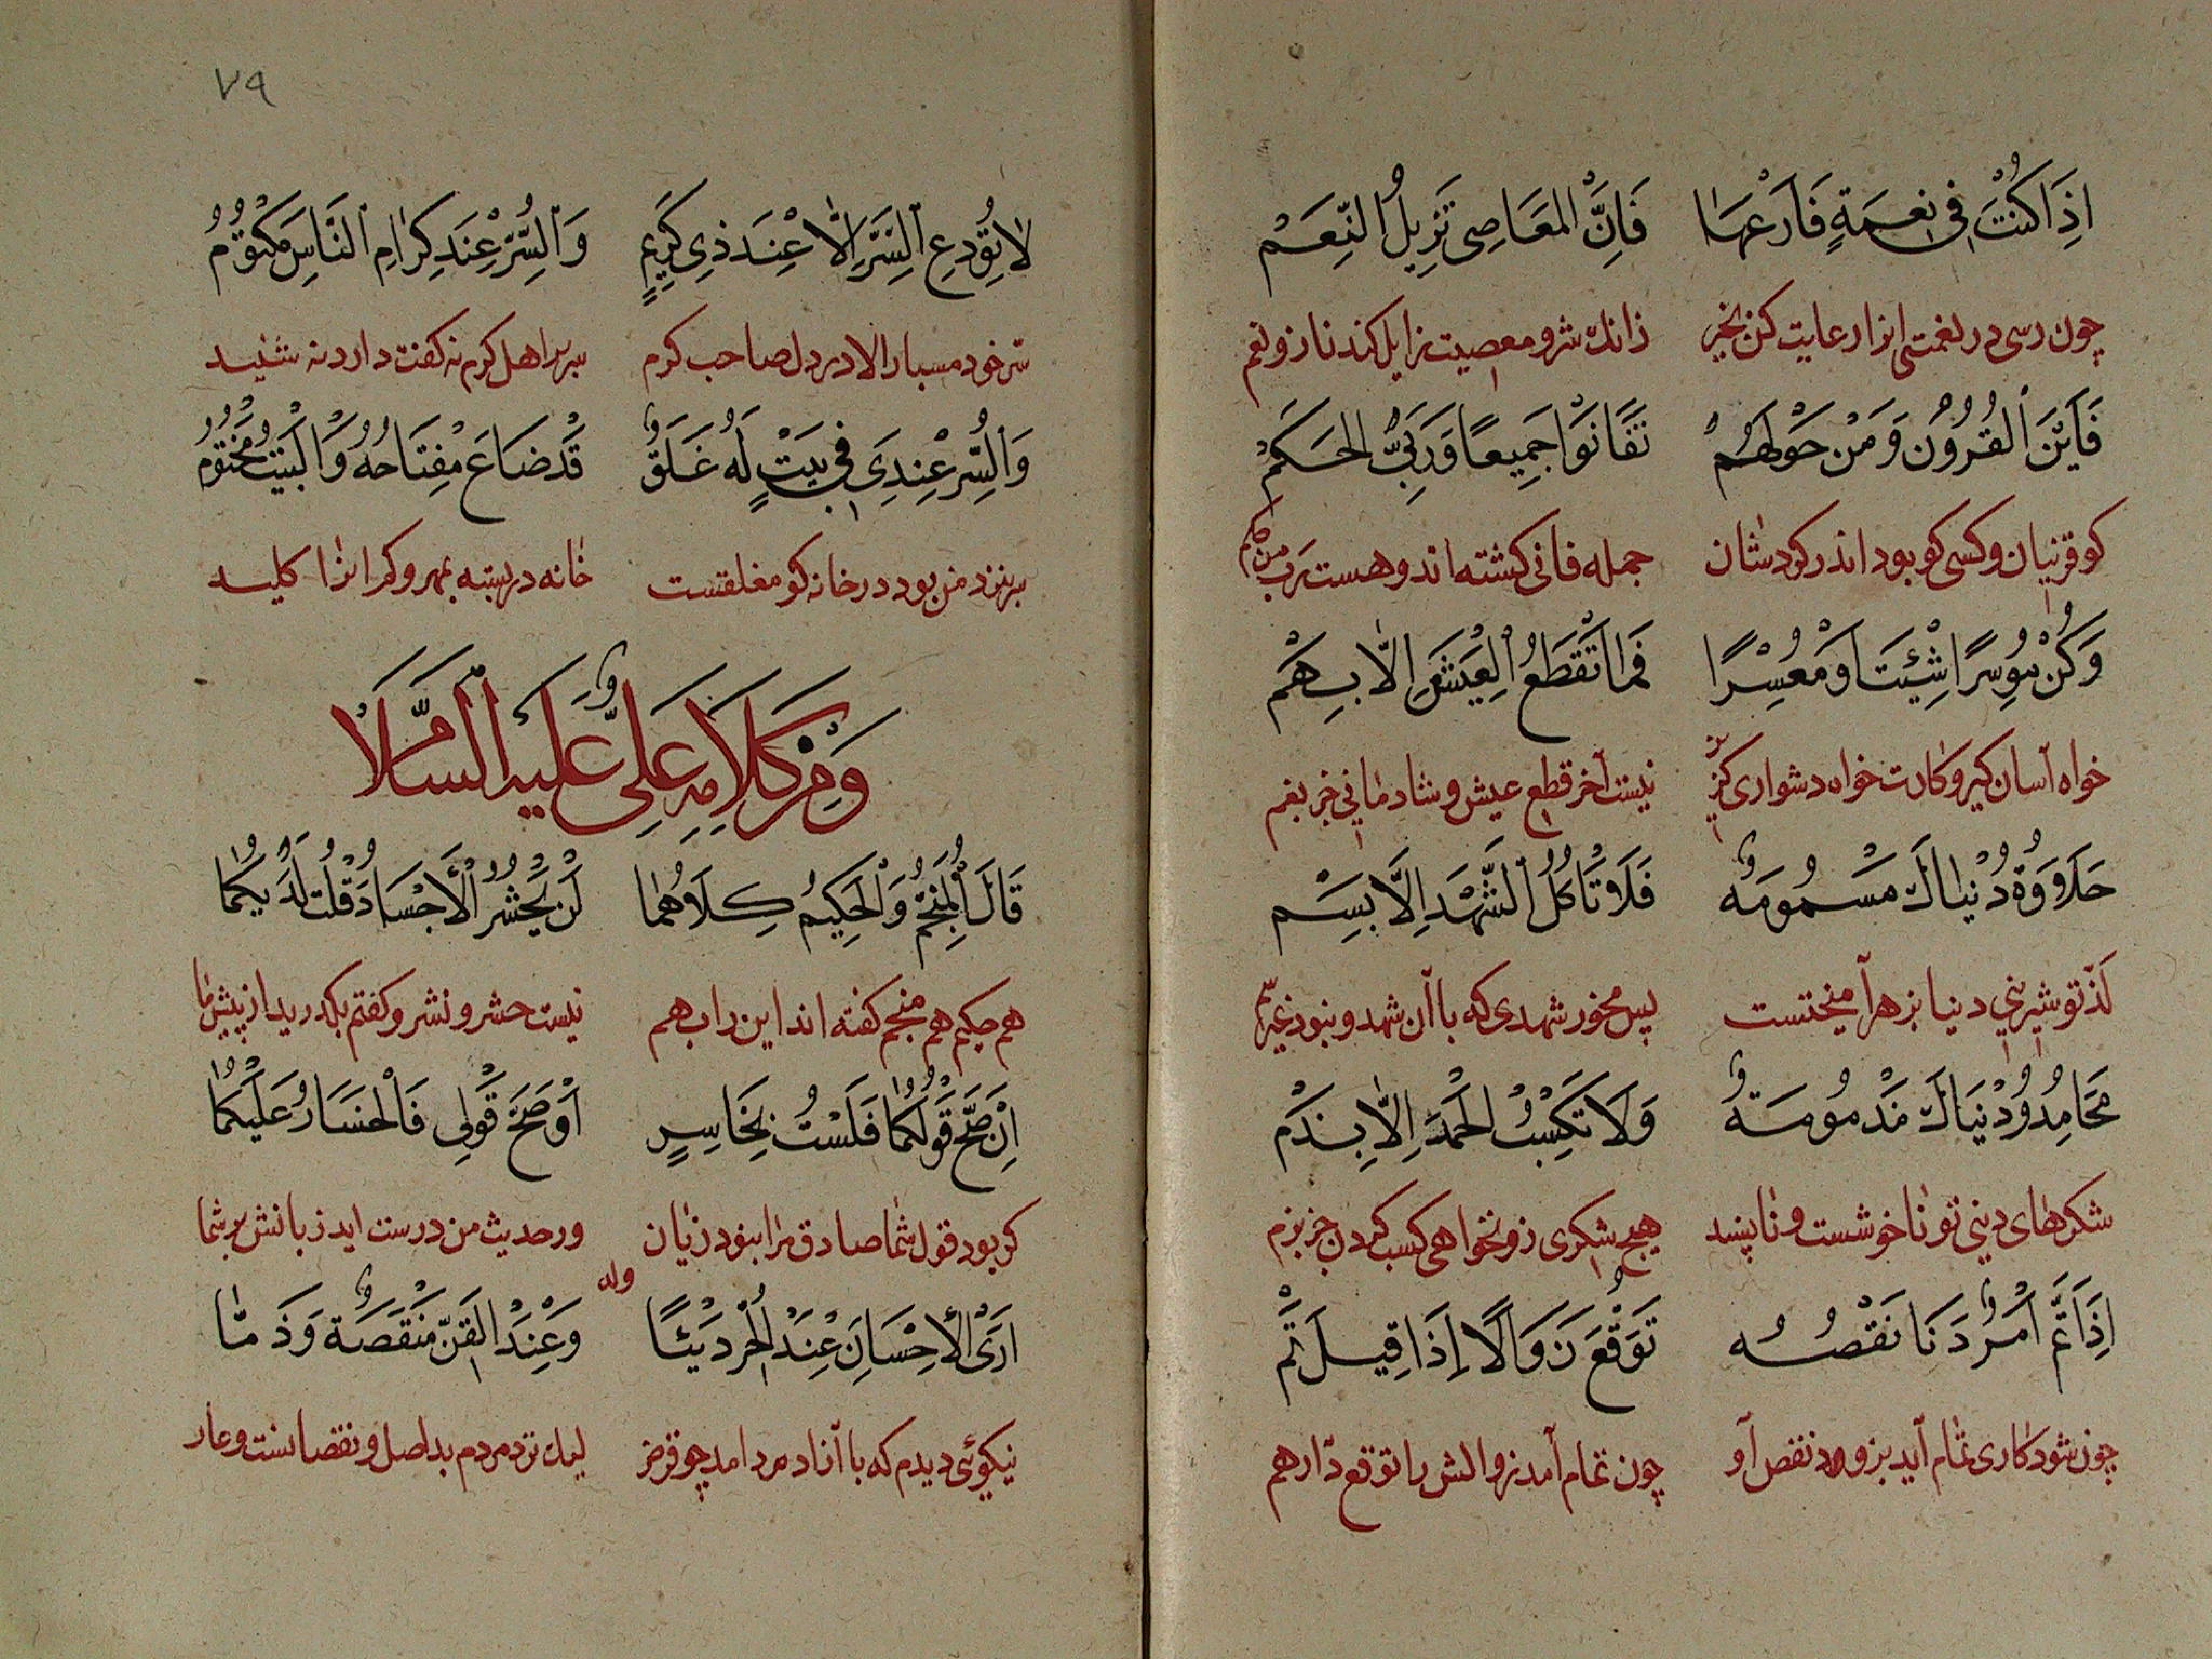 اِذَا كُنْتَ فِي نِعْمَةٍ فَارْعَهَا فَاِنَّ الْمَعَاصِي تَزِيلُ النِّعَمْ
چون رسی در نعمتی انرا رعایت کن بخیر زانك شر و معصیت زایل کند ناز و نعم
فَاَيْنَ الْقُرُوْنُ وَمَنْ حَوْلَهُمْ تَفَانَوْا جَمِيعًا وَرَبِّيْ الْحَكَمْ
کو قرنیان و کسی کو بود اندر کردشان جمله فانی کشته اند و هست رب من حکم
وَكُنْ مُوسِرًا شِئْتَ اَوْ مُعْسِرًا فَمَا تَقْطَعُ الْعَيْشَ اِلَّا بِهَمْ
خواه آسان کیر و کارت خواه دشواری کزین نیست آخر قطع عیش و شادمانی جز بغم
حَلَاوَةُ دُنْيَاكَ مَسْمُومَةٌ فَلَا تَأكُلُ الشَّهْدَ اِلَّا بِسَمْ
لذتو شیرینی دنیا بزهر آمیختست پس مخور شهدی که با آن شهد و نبود غیر سم
مَحَامِدُ دُنْيَاكَ مَذْمُومَةٌ وَلَا تَكْسِبُ الْحَمْدَ اِلَّا بِذَمْ
شکرهای دینی تو ناخوشست و ناپسند هیچ شکری زو نخواهی کسب کردن جز بزم
اِذَا تَمَّ اَمْرٌ دَنَا نَقْصُهُ تَوَقَّعْ زَوَالًا اِذَا قِيلَ تَمْ
چون شود کاری تمام آید بزودی نقص آو چون تمام آمد زوالش را توقع دار هم
٧٩
لَا تُودِعِ السِّرَّ اِلَّا عِنْدَ ذِي كَرِيمٍ وَالسِّرُّ عِنْدَ كِرَامِ النَّاسِ مَكْتُوْمُ
سر خود مسپار الا در دل صاحب کرم سر بر اهل کرم نه کفت دارد نه شنید
وَالسِّرُّ عِنْدِي فِي بَيْتٍ لَهُ غَلَقٌ قَدْ ضَاعَ مِفْتَاحُهُ وَالْبَيْتُ مَخْتُوْمُ
سر نزد من بود در خانه کو مغلقست خانه در بسته بمهر و کم انرا کلید
وَمِنْ كَلَامِهِ عَلِيٍّ عَلَيْهِ السَّلَامْ
قَالَ الْمُنَجِّمُ وَالْحَكِيمُ كِلَاهُمَا لَنْ يُحْشَرُ الْأَجْسَادُ قُلْتُ لَدَيْكُمَا
هم حکیم هم منجم کفته اند این را بهم نیست حشر و نشر و کفتم بکدرید از پیش ما
اِنْ صَحَّ قَوْلُكُمَا فَلَسْتُ بِخَاسِرٍ اَوْ صَحَّ قَوْلِي فَالْخَسَارُ عَلَيْكُمَا
کر بود قول شما صادق مرا نبود زیان ور حدیث من درست اید زبانش بر شما
وله
اَرَى الْأِحْسَانَ عِنْدَ الْحُرِّ دَيْنًا وَعِنْدَ الْقِنِّ مَنْقَصَةً وَذَمَّا
نیکوئی دیدم که با آزاد مرد امد چو قرض لیك نزد مردم بد اصل و نقصانست و عار